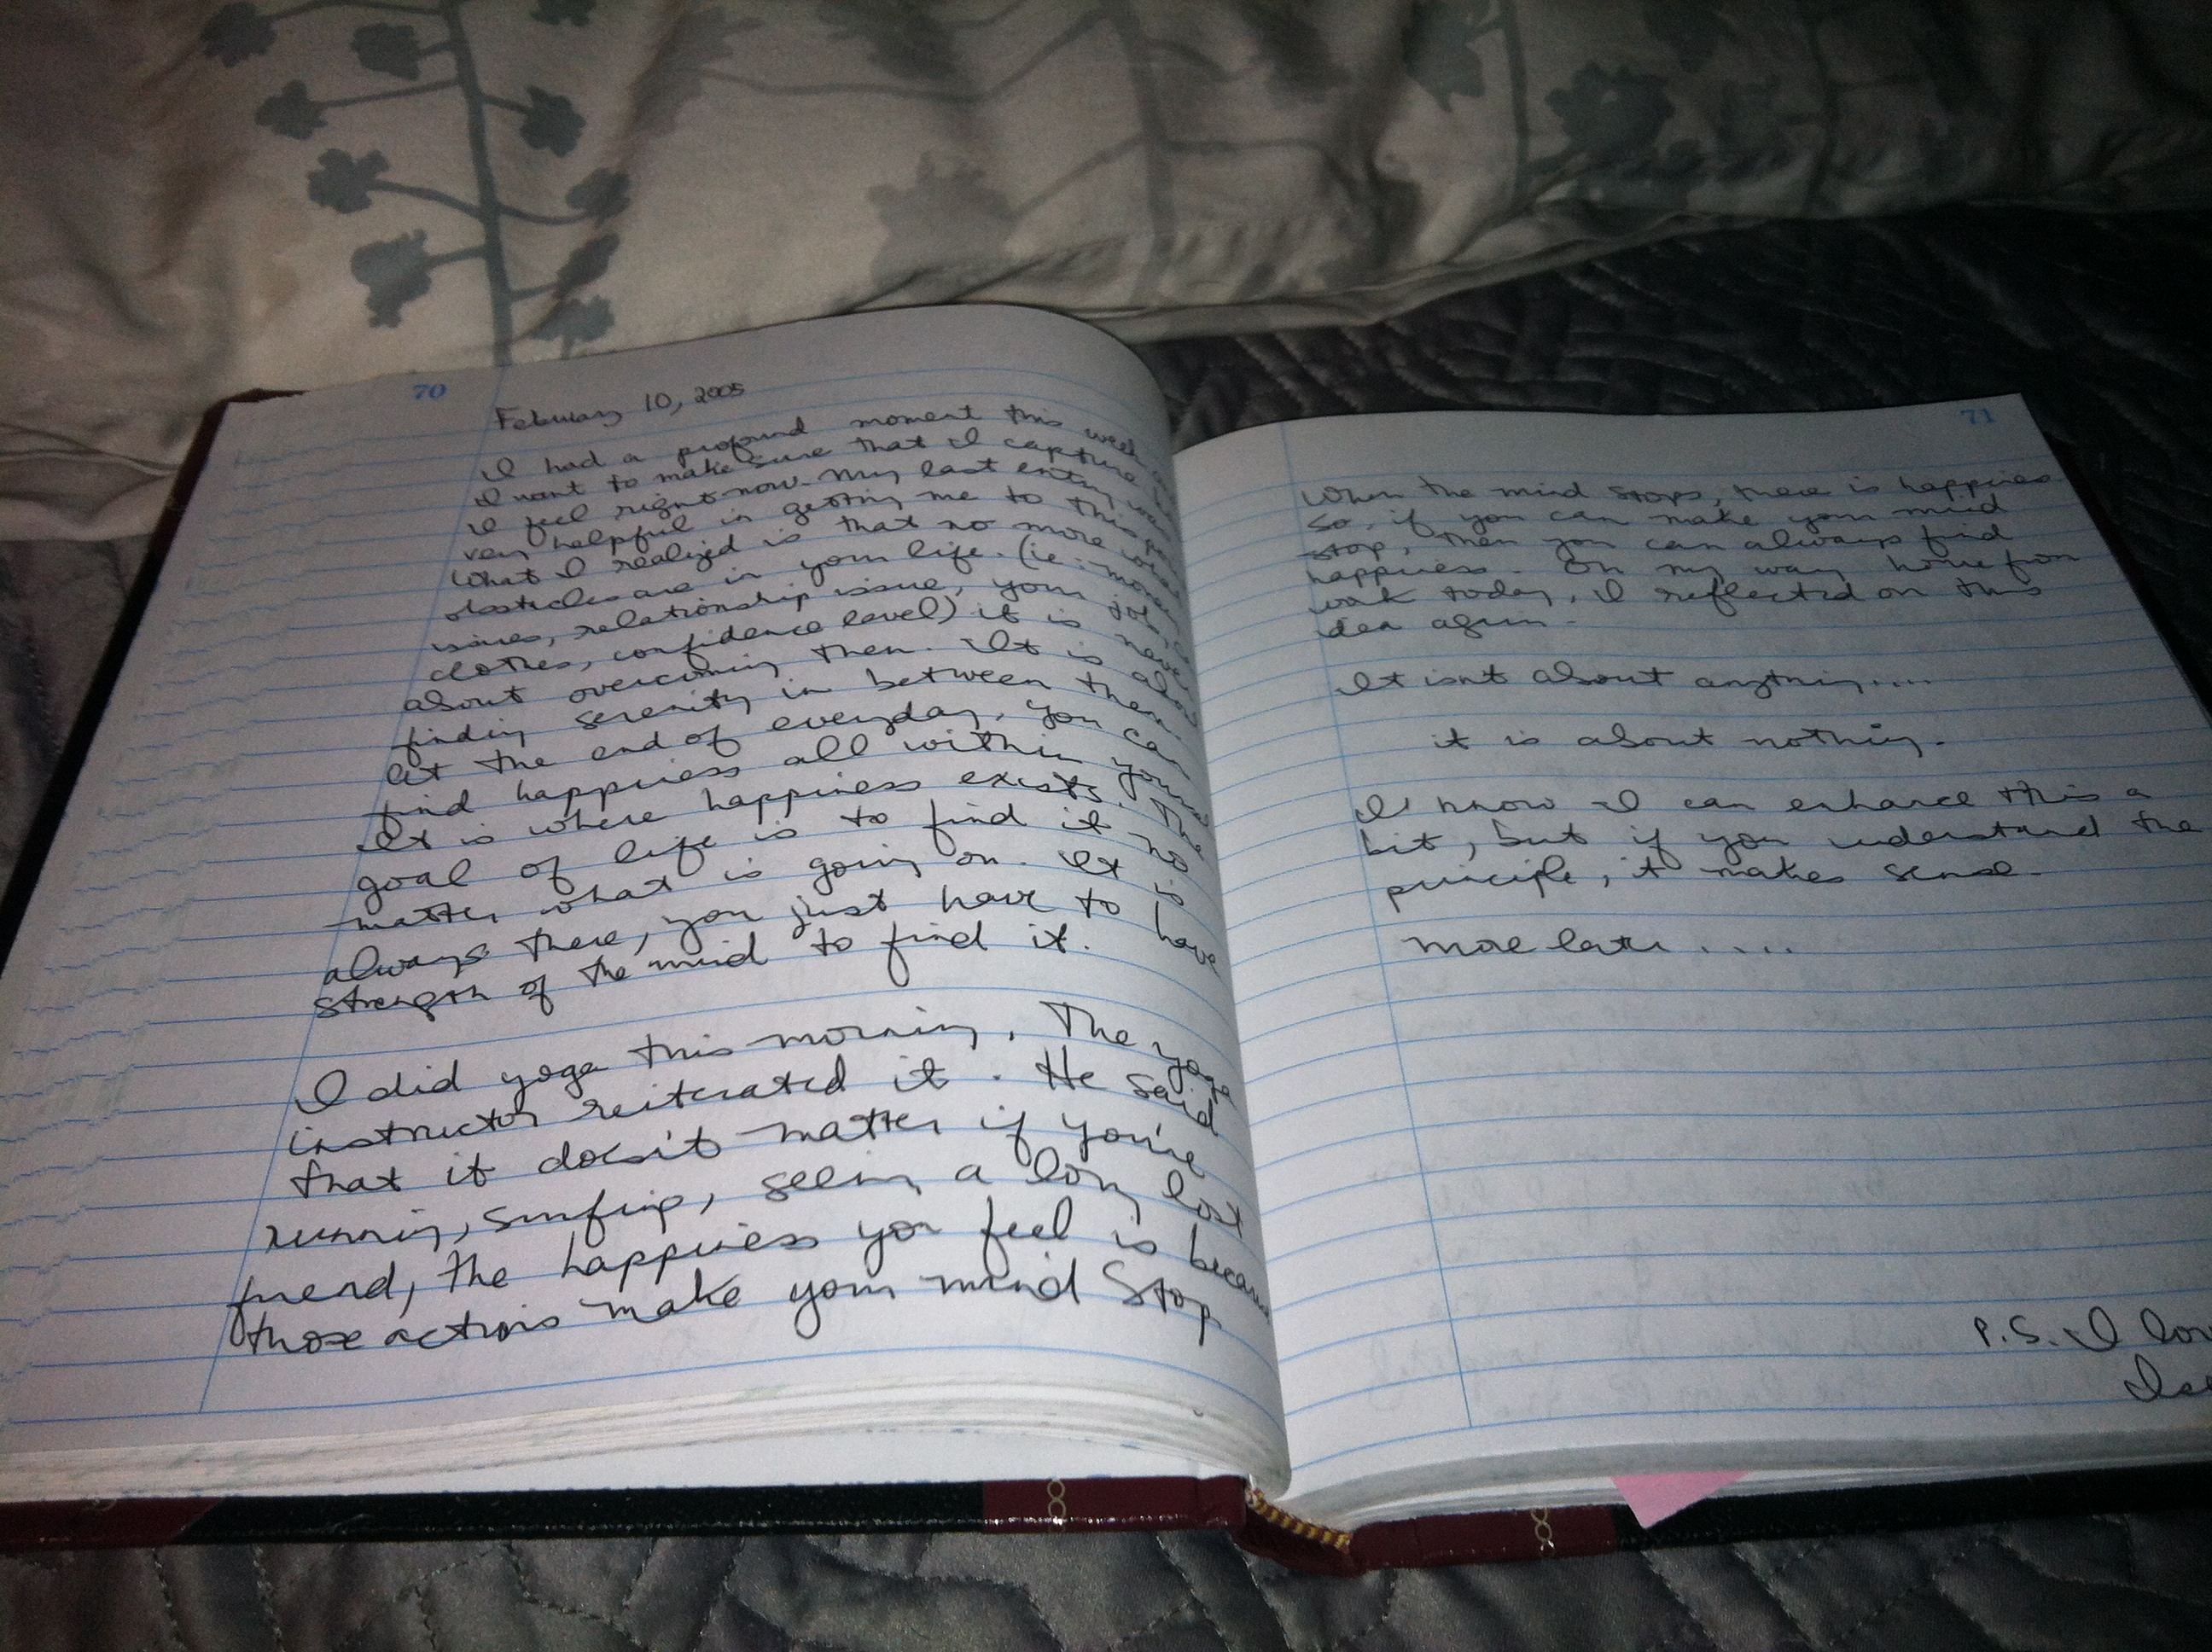 70
February 10, 2005
I had a profound moment this week
I want to make sure that I capture
I feel right now. My last entry was
very helpful in getting me to this
What I realized is that no more what
obstacles are in your life. (ie: money
issues, relationship issue, your job,
clothes, confidence level) it is never
about overcoming them. It is about
finding serenity in between them.
At the end of everyday, you can
find happiness all within
It is where happiness exists. The
goal of life is to find it no
matter what is going on. It is
always there, you just have to have
strength of the mind to find it.
I did yoga this morning. The yoga
instructor reiterated it. He said
that it doesn't matter if you're
running, surfing, seeing a long lost
friend, the happiness you feel is because
those actions make your mind stop
71
When the mind stops, there is happiness
So, if you can make your mind
stop, then you can always find
happiness. On my way home from
work today, I reflected on this
idea again.
It isnt about anything....
it is about nothing.
I know I can enhance this a
bit, but if you understand the
principle, it makes sense.
more later.....
P.S. I